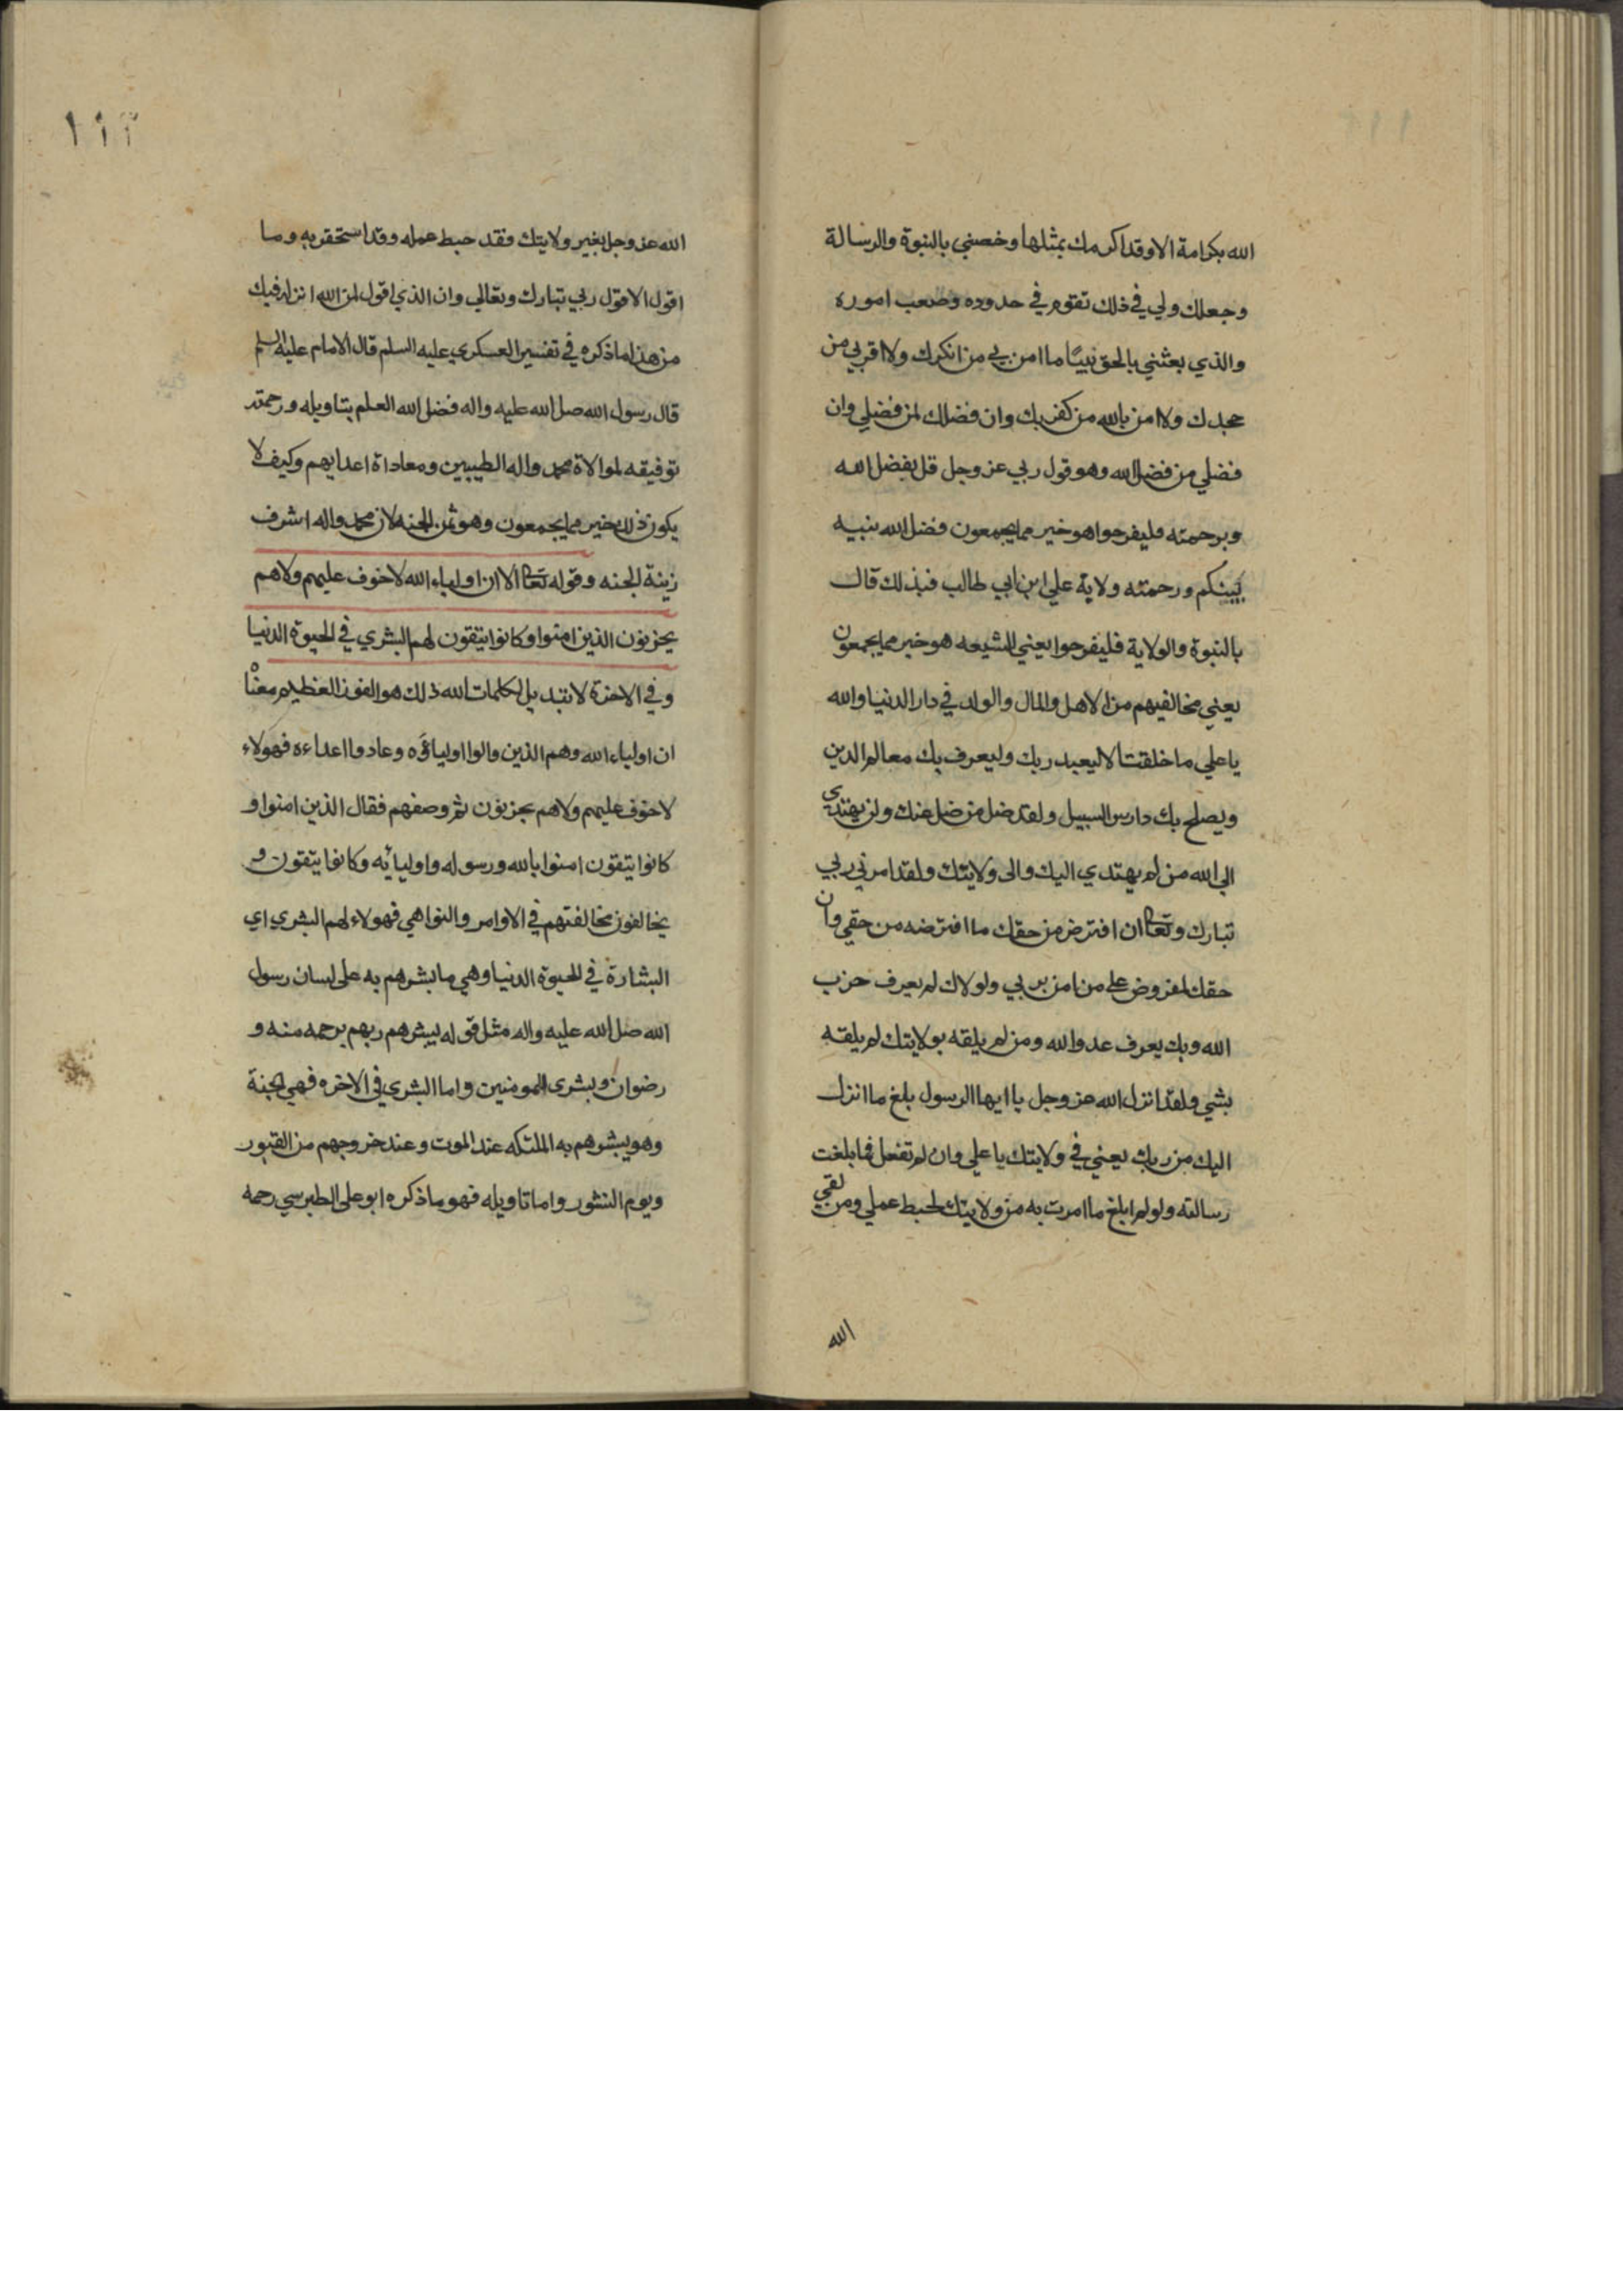 الله بكرامة الا وقد اكرمك بمثلها وخصني بالنبوة والرسالة
وجعلك ولي في ذلك تقوم في حدوده وصعب اموره
والذي بعثني بالحق نبيًا ما امن بي من انكرك ولا اقر بي من
جحدك ولا امن بالله من كفر بك وان فضلك لمن فضلي وان
فضلي من فضل الله وهو قول ربي عز وجل قل بفضل الله
وبرحمته فليفرحوا هو خير مما يجمعون فضل الله بنبيه
نبيكم ورحمته ولاية علي ابن ابي طالب فبذلك قال
بالنبوة والولاية فليفرحوا يعني الشيعه هو خير مما يجمعون
يعني مخالفيهم من الاهل والمال والولد في دار الدنيا والله
يا علي ما خلقت الا ليعبد ربك وليعرف بك معالم الدين
ويصلح بك دارس السبيل ولقد ضل من ضل عنك ولن يهتدي
الي الله من لم يهتدي اليك والى ولايتك ولقد امرني ربي
تبارك وتعا ان افترض من حقك ما افترضه من حقي وان
حقك لمفروض على من امن بربي ولولاك لم يعرف حزب
الله وبك يعرف عدو الله ومن لم يلقه بولايتك لم يلقه
بشي ولقد انزل الله عز وجل يا ايها الرسول بلغ ما انزل
اليك من ربك يعني في ولايتك يا علي وان لم تفعل فما بلغت
رسالته ولو لم ابلغ ما امرت به من ولايتك لحبط عملي ومن لقي
الله
١١٢
الله عز وجل بغير ولايتك فقد حبط عمله وقد استحقر به وما
اقول الا قول ربي تبارك وتعالي وان الذي اقول لمن الله انزله فيك
من هذا ما ذكره في تفسير العسكري عليه السلم قال الامام عليه السلم
قال رسول الله صل الله عليه واله فضل الله العلم بتاويله ورحمته
توفيقه لموالاة محمد واله الطيبين ومعاداة اعدايهم وكيف لا
يكون ذلك خير مما يجمعون وهو ثمن الجنه لان محمد واله اشرف
زينة الجنه وقوله تعا الا ان اولياء الله لا خوف عليهم ولا هم
يحزنون الذين امنوا وكانوا يتقون لهم البشري في الحيوة الدنيا
وفي الاخرة لا تبديل لكلمات الله ذلك هو الفوز العظيم معناه
ان اولياء الله وهم الذين والوا اولياؤه وعادوا اعداءه فهولاء
لا خوف عليهم ولا هم يحزنون ثم وصفهم فقال الذين امنوا و
كانوا يتقون امنوا بالله ورسوله واوليائه وكانوا يتقون و
يخالفون مخالفتهم في الاوامر والنواهي فهولاء لهم البشري اي
البشارة في الحيوة الدنيا وهي ما بشرهم به على لسان رسول
الله صل الله عليه واله مثل قوله يبشرهم ربهم برحمه منه و
رضوان وبشرى المومنين واما البشري في الاخره فهي الجنة
وهو يبشرهم به الملئكه عند الموت وعند خروجهم من القبور
ويوم النشور واما تاويله فهو ما ذكره ابو على الطبرسي رحمه